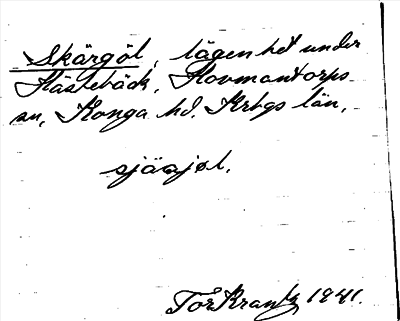 Skärgöl, lägenhet under
Hästebäck, Hovmantorps
sn, Konga hd. Krbgs län,
sjäajøl.
Tor Krantz 1941.